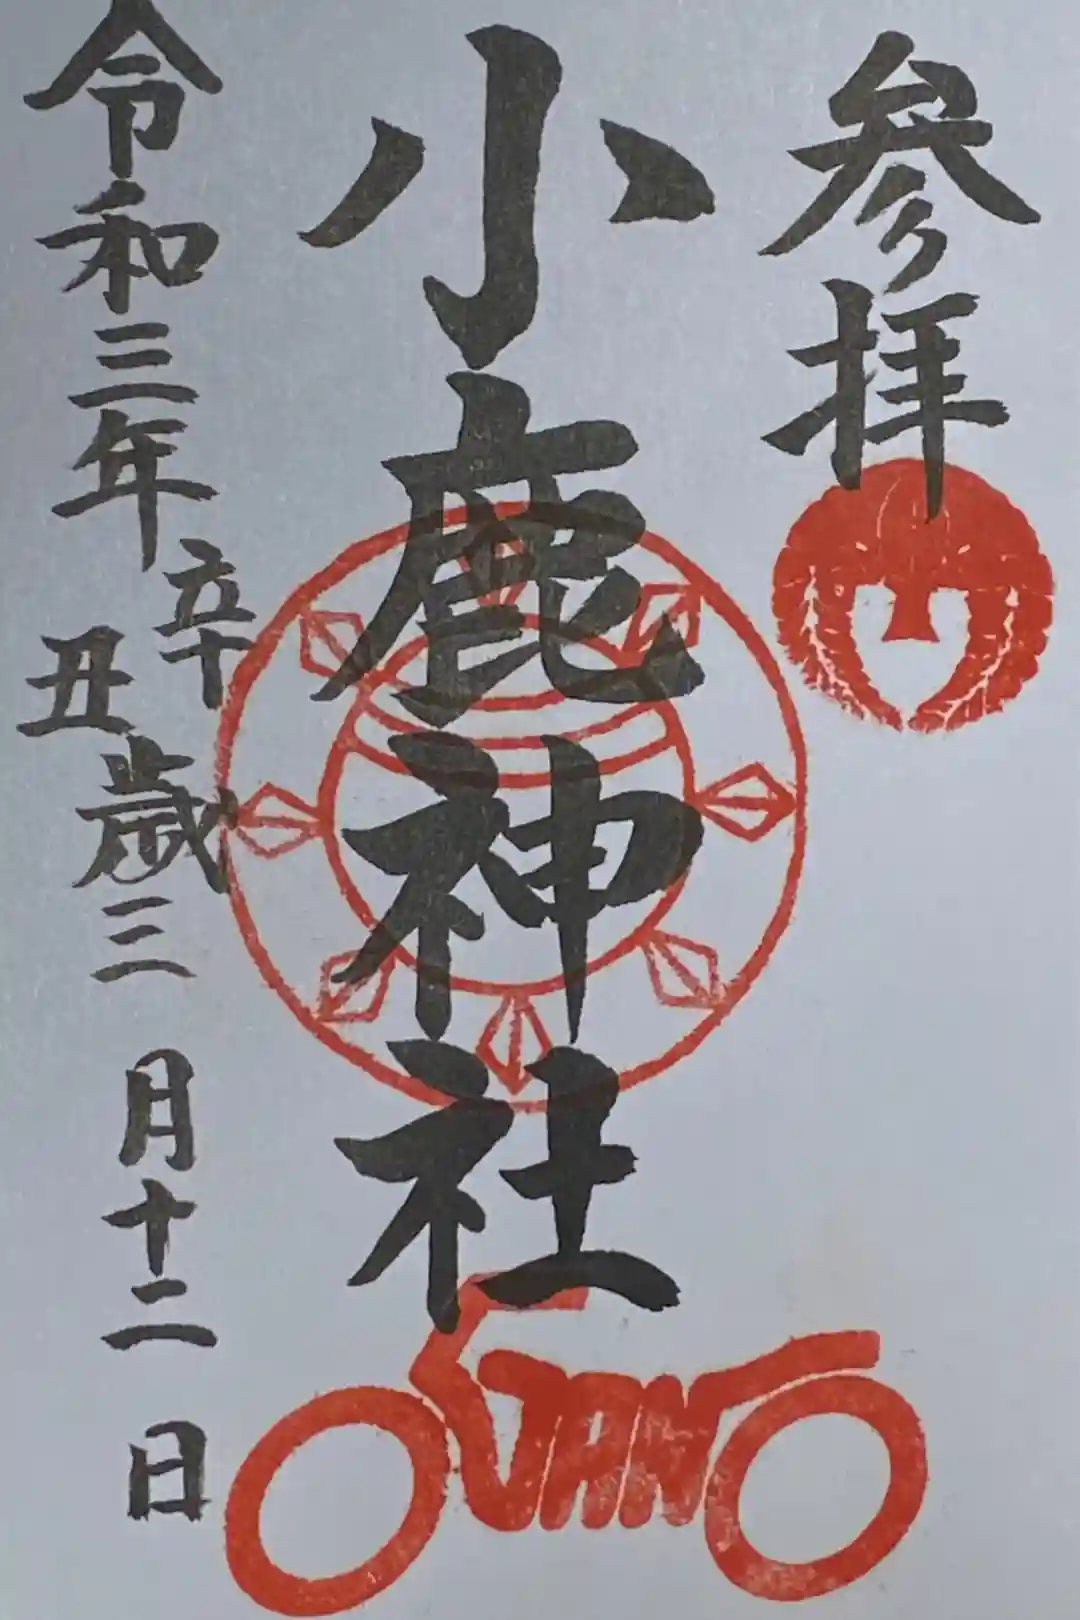 参拝
小鹿神社
令和三年
辛丑歳三月十二日